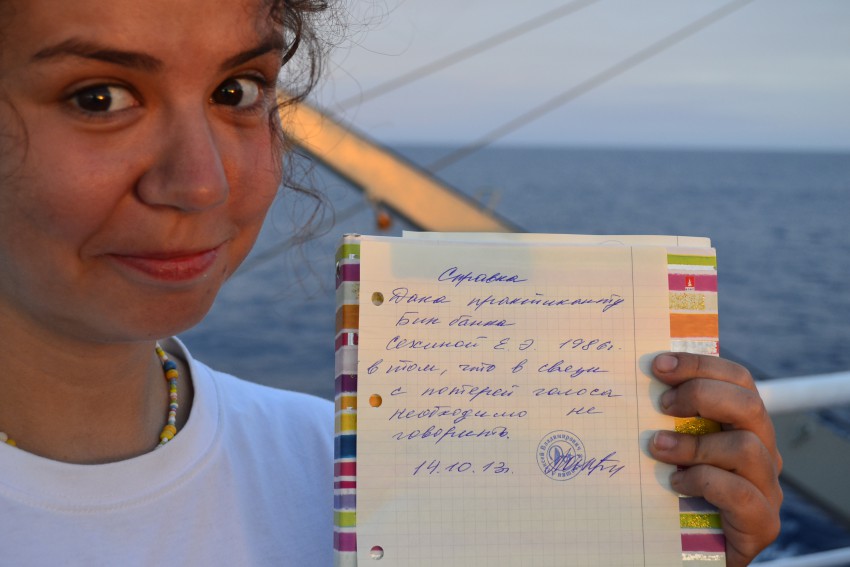 Справка
Дана практиканту
Бин банка
Сехиной Е. Э. 1986г.
в том, что в связи
с потерей голоса
необходимо не
говорить.
14.10.13г.